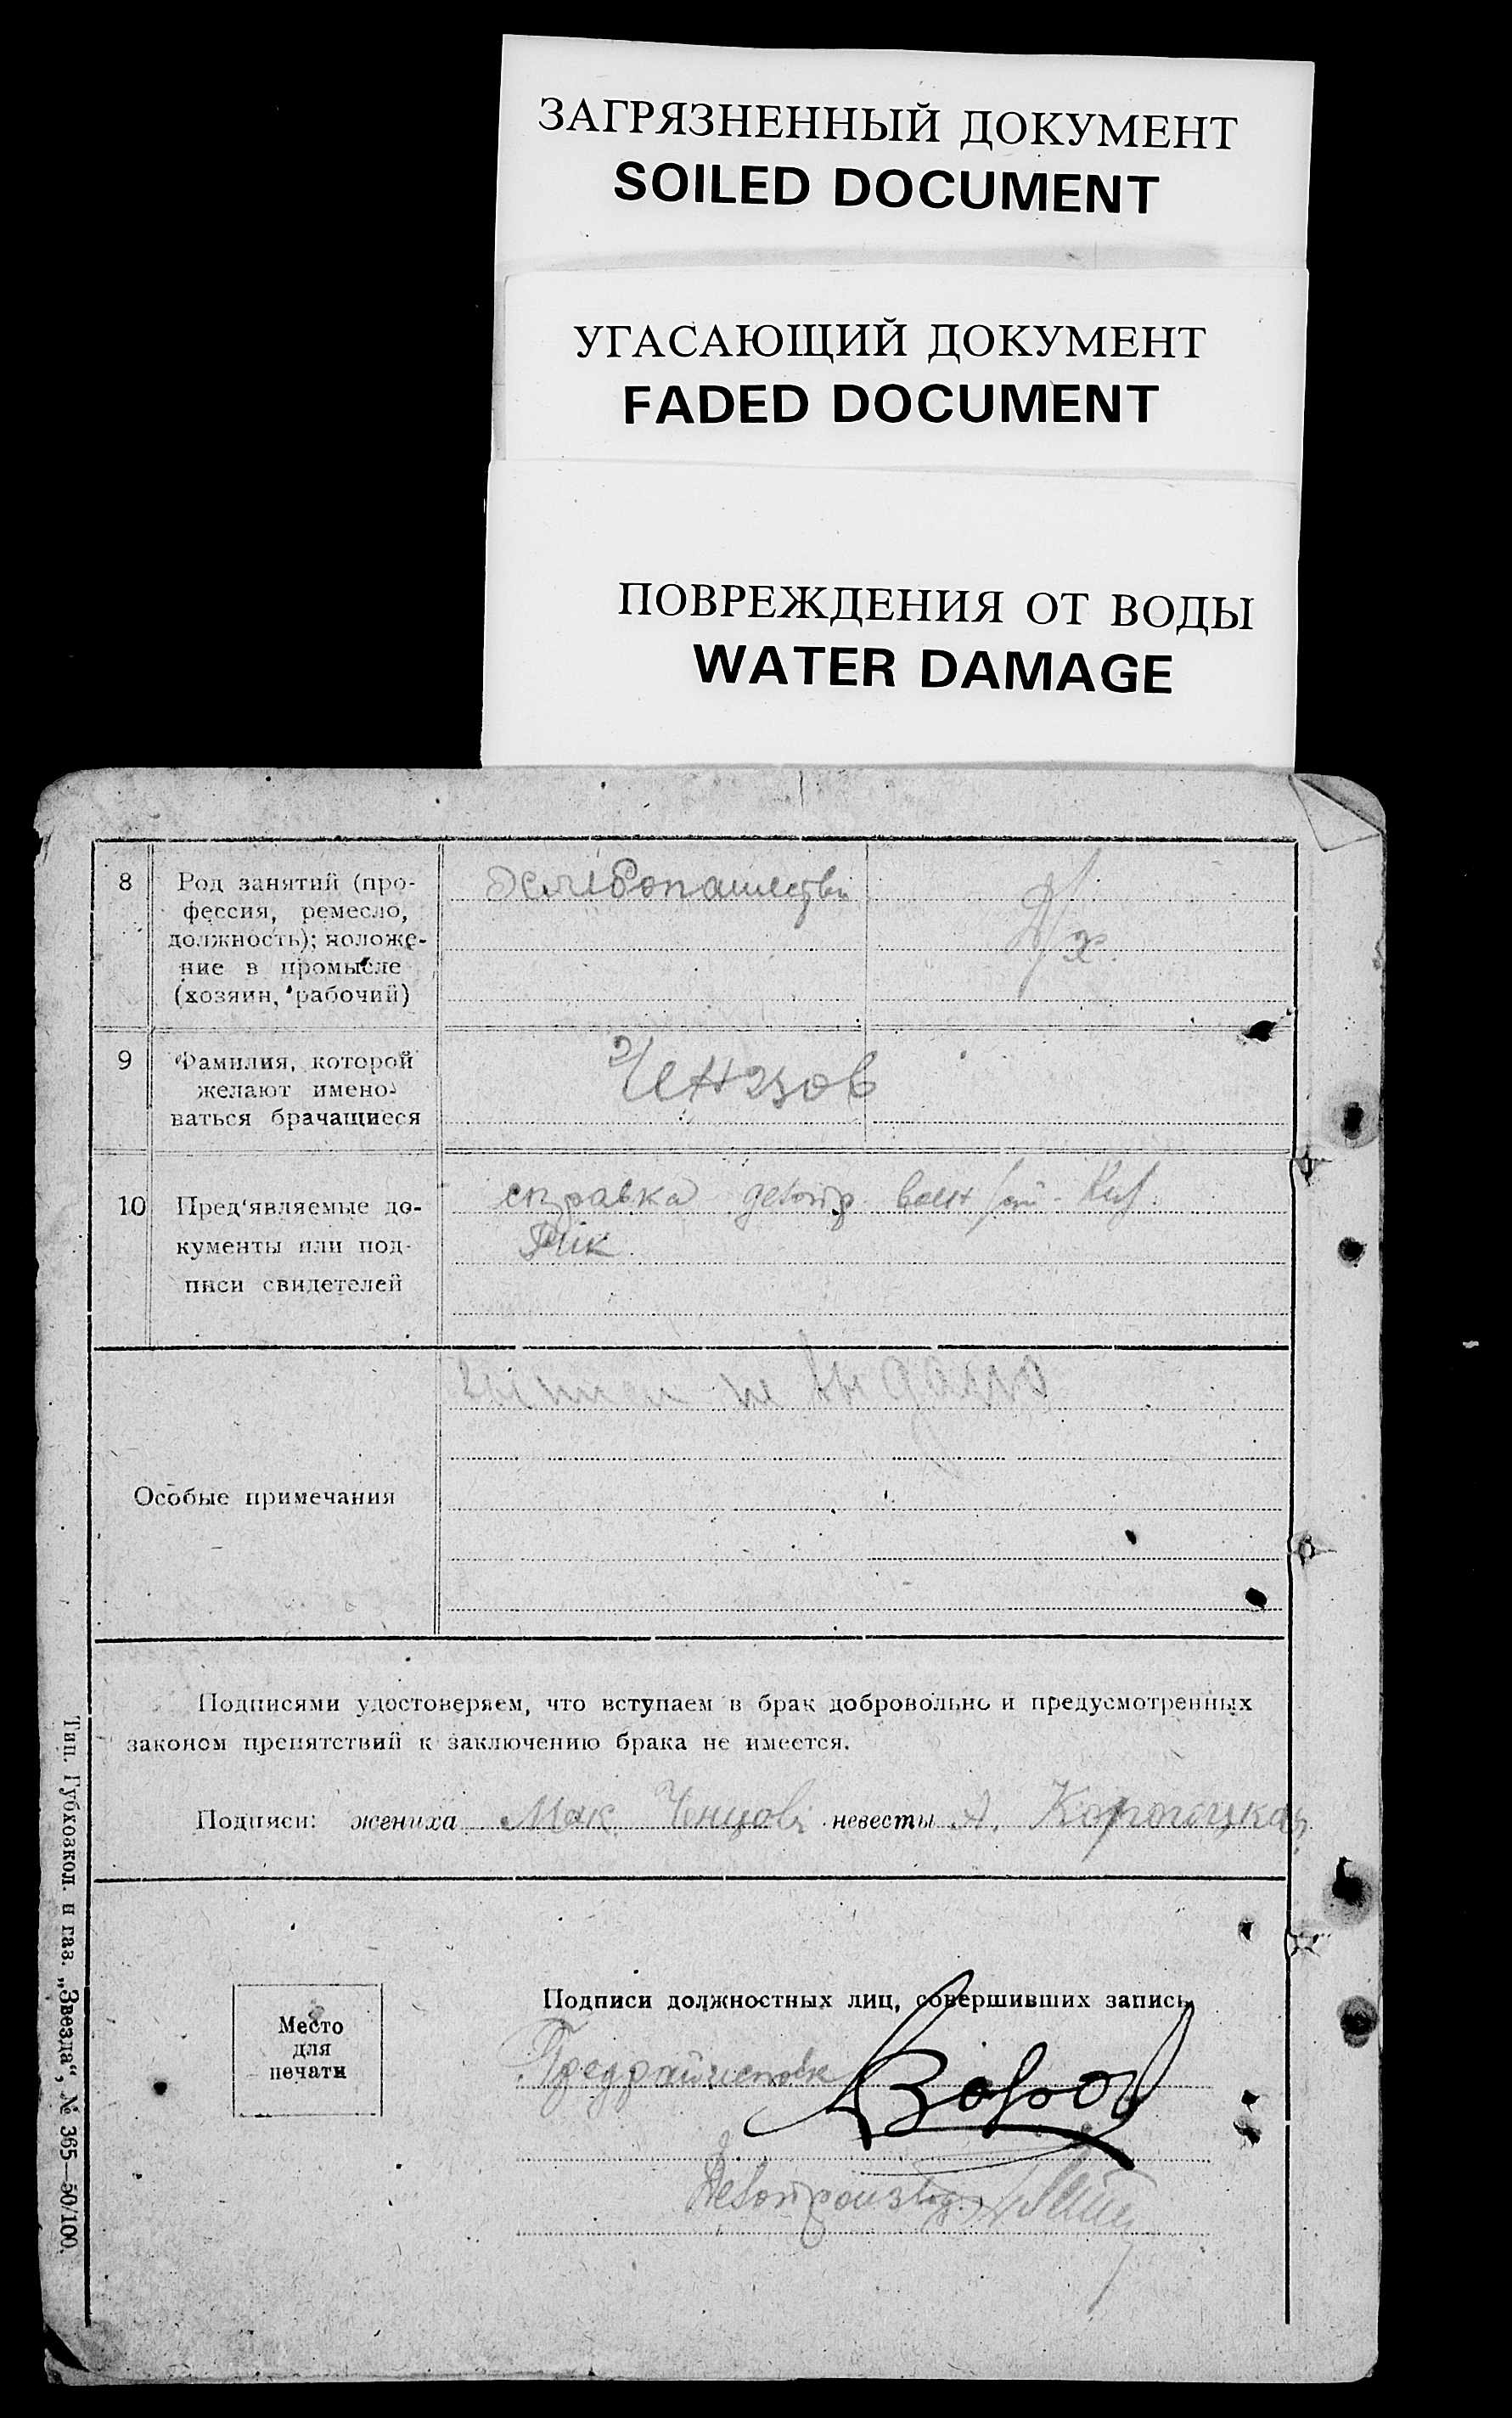 ЗАГРЯЗНЕННЫЙ ДОКУМЕНТ
SOILED DOCUMENT
УГАСАЮЩИЙ ДОКУМЕНТ
FADED DOCUMENT
ПОВРЕЖДЕНИЯ ОТ ВОДЫ
WATER DAMAGE
8
Род занятий (про-
фессия, ремесло,
должность); положе-
ние в промысле
(хозяин, рабочий)
хлебопашество
Д/х.
9
Фамилия, которой
желают имено-
ваться брачащиеся
Ченцов
10
Пред'являемые до-
кументы или под-
писи свидетелей
справка
Рик
Особые примечания
не
Подписями удостоверяем, что вступаем в брак добровольно и предусмотренных
законом препятствий к заключению брака не имеется.
Подписи: жениха Мак. Ченцов невесты А. Коротицкая
Место
для
печати
Подписи должностных лиц, совершивших запись
Предрайисполк
Делопроизвод.
Тип. Губхозкол. и газ. „Звезда“, № 365—50/100.